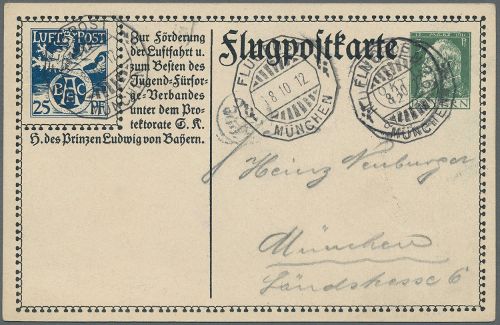 LUFT POST
BAC
25 PF
Zur Förderung
der Luftfahrt u.
zum Besten des
Jugend-Fürsor-
ge-Verbandes
unter dem Pro-
tektorate S. K.
H. des Prinzen Ludwig von Bayern.
Flugpostkarte
FLUG
8 10 12
MÜNCHEN
FLUG
MÜNCHEN
Heinz Neuburger
München
Ländstrasse 6